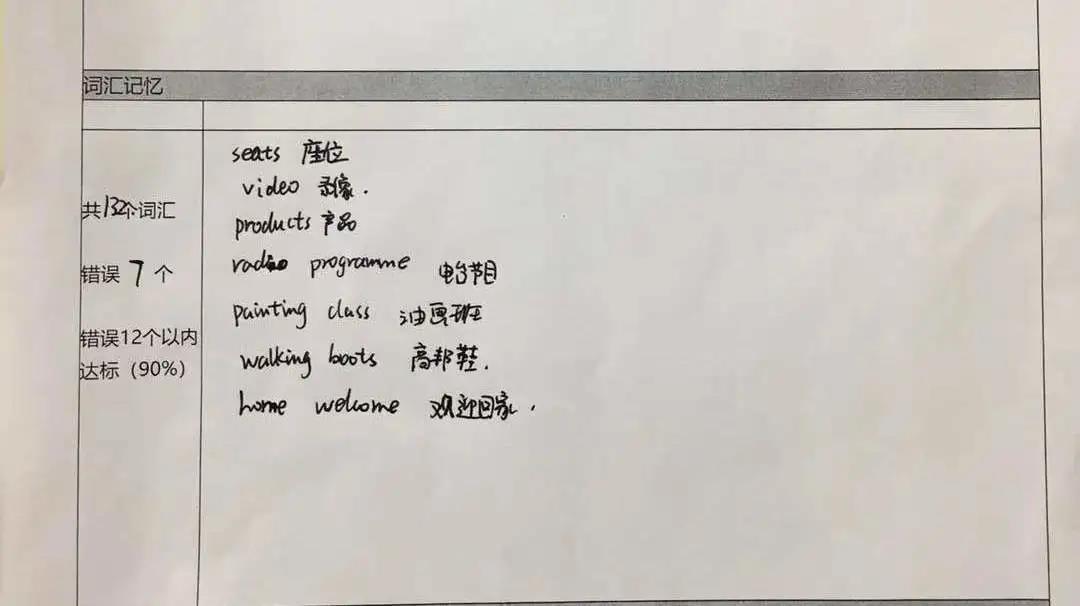 词汇记忆
共132个词汇
错误 7 个
错误12个以内
达标（90%）
seats 座位
video 录像.
products 产品
radio programme 电台节目
painting class 油画班
walking boots 高邦鞋.
home welcome 欢迎回家.